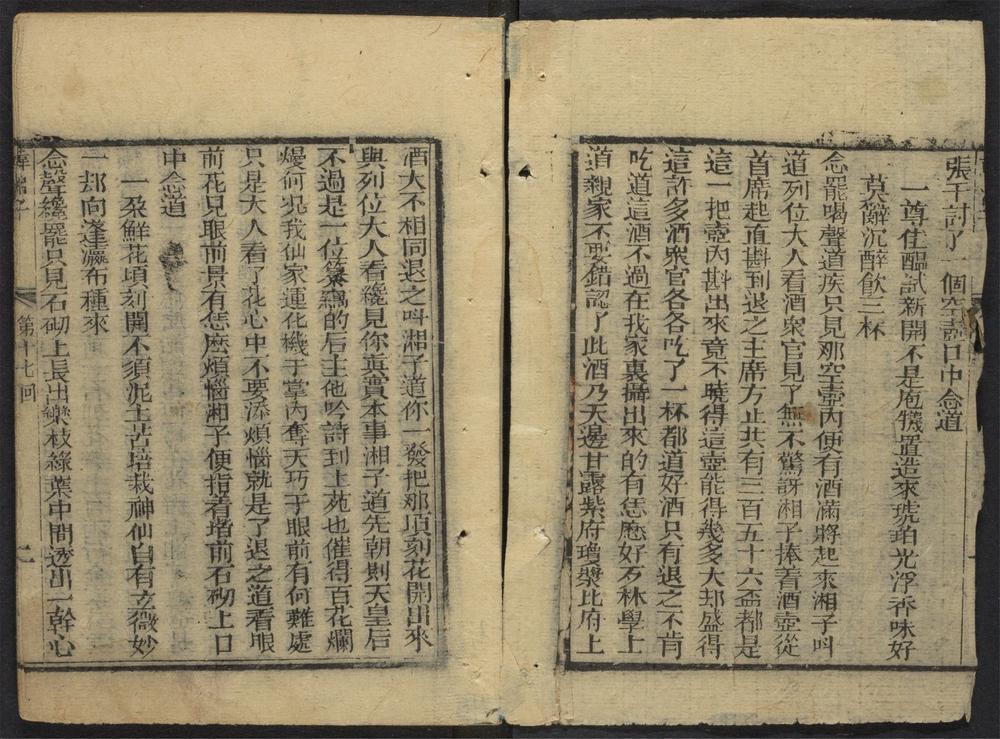 張千討了一個空壺口中念道
一尊佳醞試新開不是庖犧置造來琥珀光浮香味好
莫辭沉醉飲三杯
念罷喝聲道疾只見那空壺內便有酒滿將起來湘子叫
道列位大人看酒衆官見了無不驚訝湘子捧着酒壺從
首席起直斟到退之主席方止共有三百五十六盃都是
這一把壺內斟出來竟不曉得這壺能得幾多大却盛得
這許多酒衆官各各吃了一杯都道好酒只有退之不肯
吃道這酒不過在我家裏攝出來的有怎麽好歹林學士
道親家不要錯認了此酒乃天邊甘露紫府瓊漿比府上
酒大不相同退之叫湘子道你一發把那頃刻花開出來
與列位大人看纔見你真實本事湘子道先朝則天皇后
不過是一位篡竊的后主他吟詩到上苑也催得百花爛
熳何况我仙家運化機于掌內奪天巧于眼前有何難處
只是大人看了花心中不要添煩惱就是了退之道看眼
前花兄眼前景有怎麽煩惱湘子便指着堦前石砌上口
中念道
一朶鮮花頃刻開不須泥土苦培栽神仙自有玄微妙
一却向蓬瀛布種來
念聲纔罷只見石砌上長出欒枝綠葉中間透出一幹心
韓湘子
第十七回
二